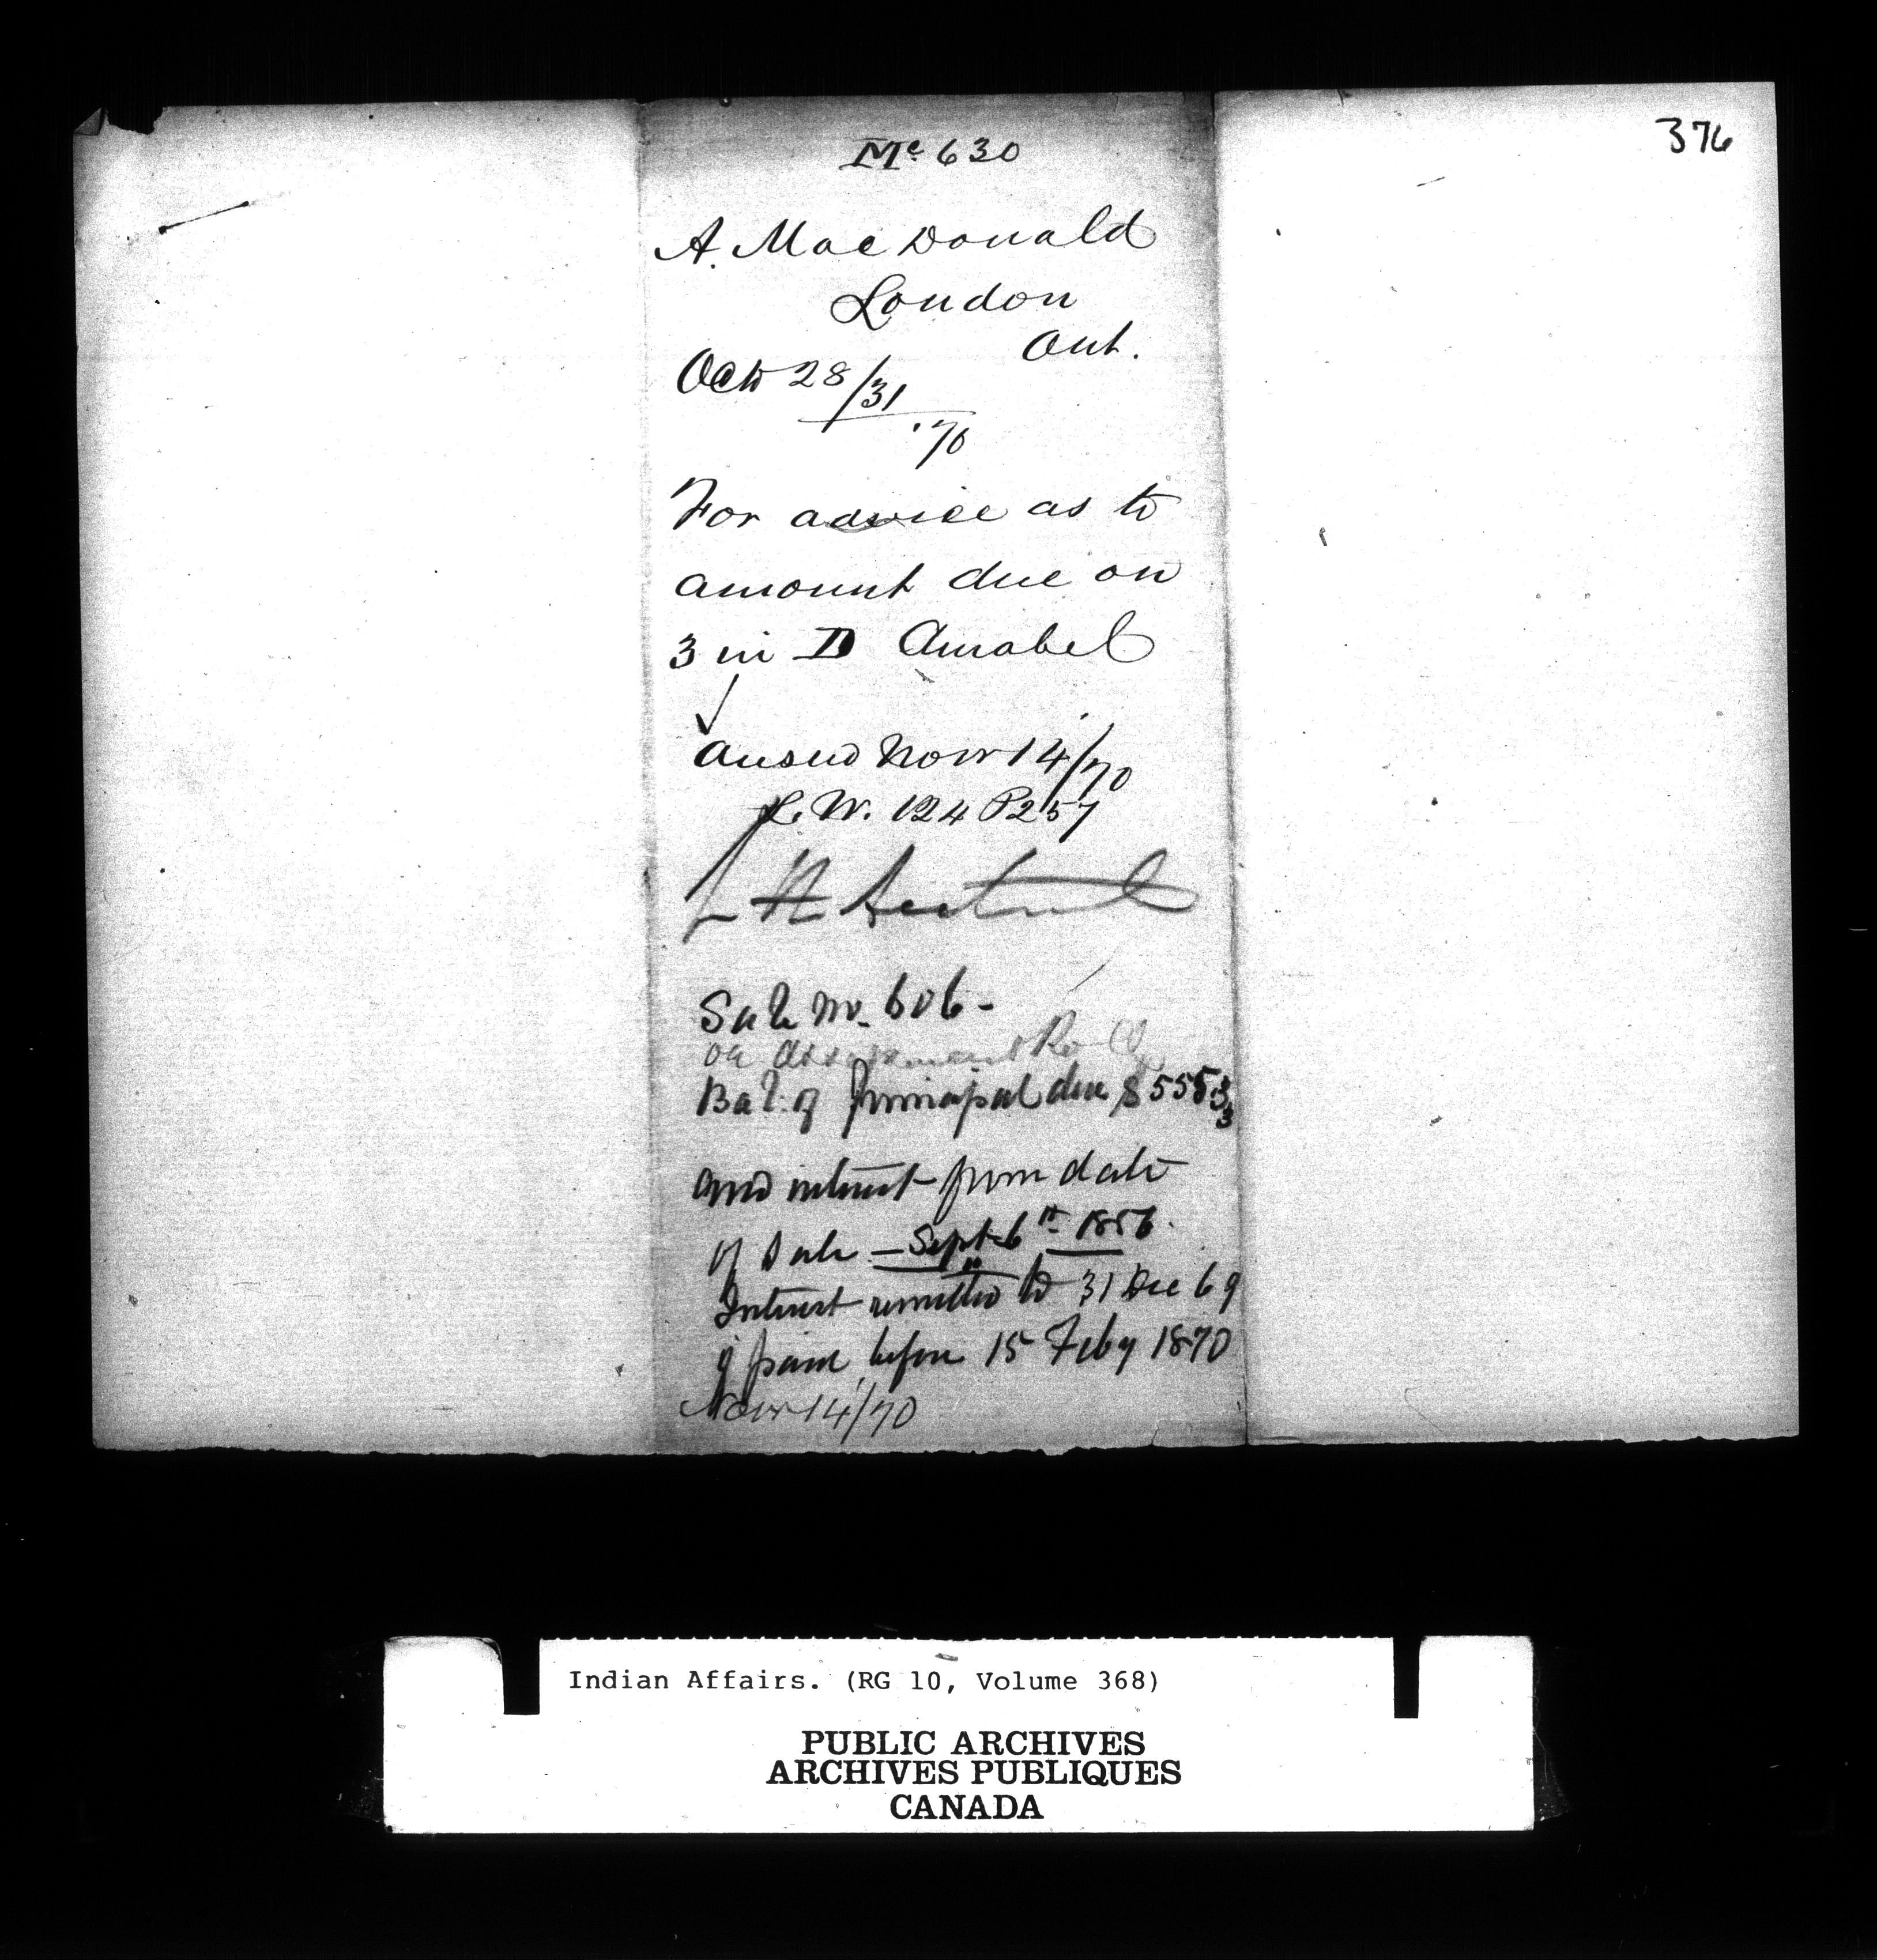 376
Mc 630
A. MacDonald
London
Ont.
Oct 28/31
'70
For advice as to
amount due on
3 in D Amabel
Answd Novr 14/70
L. W. 124 P257
Sale No. 606 -
on
Bal. of principal due $555
and interest from date
of Sale - Sept 6th 1856.
Interest remitted to 31 Dec 69
if paid before 15 Feby 1870
Novr 14/70
Indian Affairs. (RG 10, Volume 368)
PUBLIC ARCHIVES
ARCHIVES PUBLIQUES
CANADA